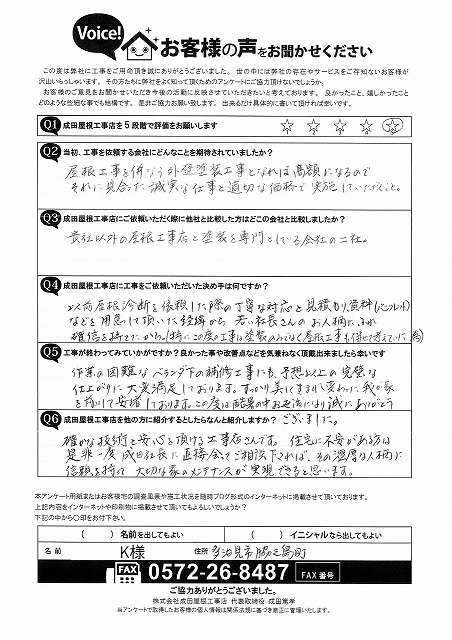 Voice!
お客様の声をお聞かせください
この度は弊社に工事をご用命頂き誠にありがとうございました。世の中には弊社の存在やサービスをご存知ないお客様が
沢山いらっしゃいます。その方たちに弊社をよく知って頂くためのアンケートにご協力頂けないでしょうか。
お客様のご意見をお聞かせいただき今後の活動に反映させていただきたいと考えております。良かったこと、嬉しかったこと
どのような些細な事でも結構です。是非ご協力お願い致します。出来るだけ具体的に書いて頂ければ幸いです。
Q1 成田屋根工事店を5段階で評価をお願いします
Q2 当初、工事を依頼する会社にどんなことを期待されていましたか?
屋根工事を併なう外壁塗装工事となれば高額になるので
それに見合った誠実な仕事と適切な価格で実施していただくこと。
Q3 成田屋根工事店にご依頼いただく際に他社と比較した方はどこの会社と比較しましたか?
貴社以外の屋根工事店と塗装を専門としている会社の二社。
Q4 成田屋根工事店に工事をご依頼いただいた決め手は何ですか?
以前屋根診断を依頼した際の丁寧な対応と見積もり資料(パンフレット)
などを用意して頂いた経緯から若い社長さんのお人柄に
確信を持てたから。(特にこの度の工事は塗装のみでなく屋根工事も併せて考えていた為)
Q5 工事が終わってみていかがですか?良かった事や改善点などを気兼ねなく頂戴出来ましたら幸いです
作業の困難なベランダ下の補修工事にも、予想以上の完璧な
仕上がりに大変満足しております。すっかり美しく生まれ変わった我が家
を前にして安堵しております。この度は酷暑の中お世話になり誠にありがとう
ございました。
Q6 成田屋根工事店を他の方に紹介するとしたらなんと紹介しますか?
確かな技術と安心を頂ける工事店さんです。住宅に不安がある方は
是非一度成田社長に直接会ってご相談下されば、その温厚な人柄に
信頼を持って大切な家のメンテナンスが実現できると思います。
本アンケート用紙またはお客様宅の調査風景や施工状況を随時ブログ形式のインターネットに掲載させて頂いております。
上記内容をインターネットや印刷物に掲載させて頂いてもよろしいでしょうか?
下記の中から〇印をお付下さい。
( )名前を出してもよい ( )イニシャルなら出してもよい
名前 K様 住所 多治見市脇之島町
FAX 0572-26-8487 FAX 番号
ご協力ありがとうございました。
株式会社成田屋根工事店 代表取締役 成田篤孝
※アンケートで取得したお客様の個人情報は関係法規に基づき厳正に管理いたします。